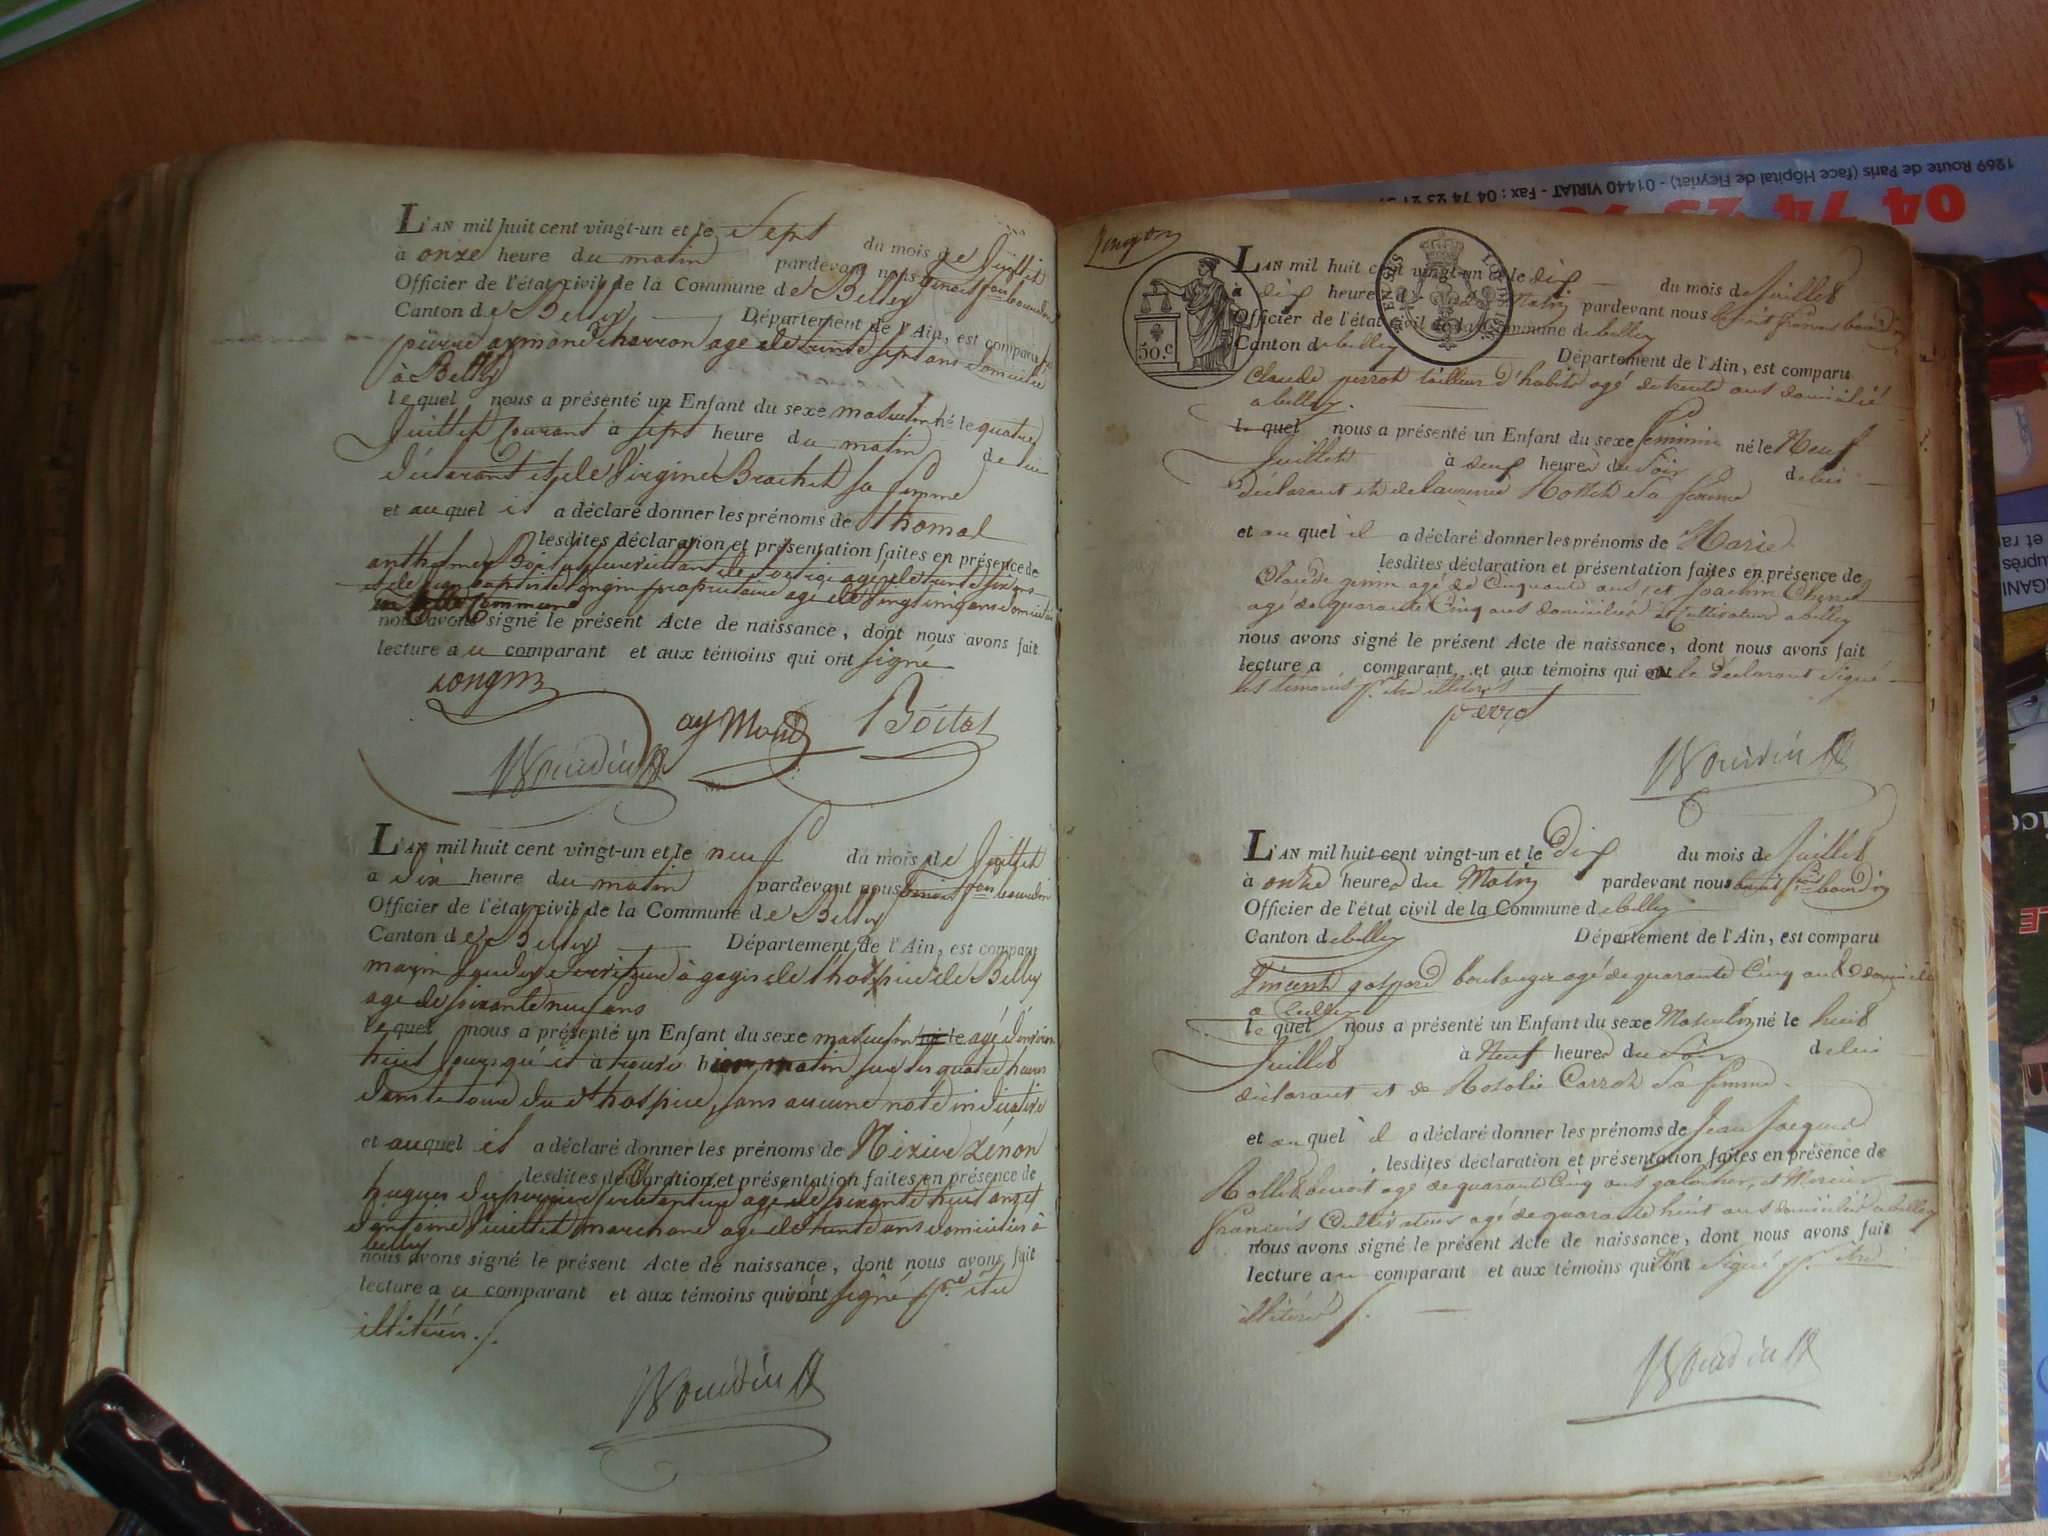 L'AN mil huit cent vingt-un et le Sept du mois de Juillet
à onze heure du matin pardevant nous
Officier de l'état civil de la Commune de Belley
Canton de Belley Département de l'Ain, est comparu
pierre aymond charron agé de trente sept ans domicilié
à Belley
lequel nous a présenté un Enfant du sexe masculin né le quatre
Juillet Courant à sept heure du matin de lui
déclarant et de Virginie Brachet sa femme
et auquel il a déclaré donner les prénoms de Thomas
lesdites déclaration et présentation faites en présence de
anthelme Boitat agé de trente six ans
et de jean baptiste Longin propriétaire agé de vingt cinq ans domiciliés
commune
nous avons signé le présent Acte de naissance, dont nous avons fait
lecture a ce comparant et aux témoins qui ont signé
Longin
aymond Boitat
Bourdin
L'AN mil huit cent vingt-un et le neuf du mois de Juillet
a dix heure du matin pardevant nous
Officier de l'état civil de la Commune de Belley
Canton de Belley Département de l'Ain, est comparu
marin à gages de l'hospice de Belley
agé de soixante neuf ans
lequel nous a présenté un Enfant du sexe masculin né le agé d'environ
huit jours qu'il a trouvé hier matin sur les quatre heures
dans le tour du dt hospice, sans aucune note indicative
et auquel il a déclaré donner les prénoms de Nizier Zénon
lesdites déclaration et présentation faites en présence de
hugues agé de soixante huit ans et
d'antoine marchand agé de trente ans domiciliés à
belley
nous avons signé le présent Acte de naissance, dont nous avons fait
lecture a ce comparant et aux témoins qui ont signé pr être
illitérés
Bourdin
50.c
L'AN mil huit cent vingt-un et le dix du mois de Juillet
à dix heures du Matin pardevant nous
Officier de l'état civil de la Commune de belley
Canton de belley Département de l'Ain, est comparu
Claude perrot tailleur d'habits agé de trente ans domicilié
a belley.
le quel nous a présenté un Enfant du sexe feminin né le Neuf
Juillet à deux heures du Soir de lui
déclarant et de laurence Hottet Sa femme
et au quel il a déclaré donner les prénoms de Marie
lesdites déclaration et présentation faites en présence de
Claude agé de Cinquante ans, et Joachim
agé de quarante Cinq ans domiciliés et Cultivateurs a belley
nous avons signé le présent Acte de naissance, dont nous avons fait
lecture a comparant, et aux témoins qui ont le déclarant Signé
les témoins pr être illitérés
perrot
Bourdin
L'AN mil huit cent vingt-un et le Dix du mois de Juillet
à onze heures du Matin pardevant nous
Officier de l'état civil de la Commune de belley
Canton de belley Département de l'Ain, est comparu
Vincent gaspard boulanger agé de quarante Cinq ans Domicilié
a belley
le quel nous a présenté un Enfant du sexe Masculin né le huit
Juillet à Neuf heures du Soir de lui
déclarant et de Rosalie Carrot Sa femme
et au quel il a déclaré donner les prénoms de Jean Jacques
lesdites déclaration et présentation faites en présence de
Rollet benoit agé de quarante Cinq ans galocher, et Mercier
francois Cultivateur agé de quarante huit ans domiciliés a belley
nous avons signé le présent Acte de naissance, dont nous avons fait
lecture au comparant et aux témoins qui ont Signé pr être
illitérés
Bourdin
1269 Route de Paris (face Hôpital de Fleyriat) - 01440 VIRIAT - Fax : 04 74 23
04 74 23